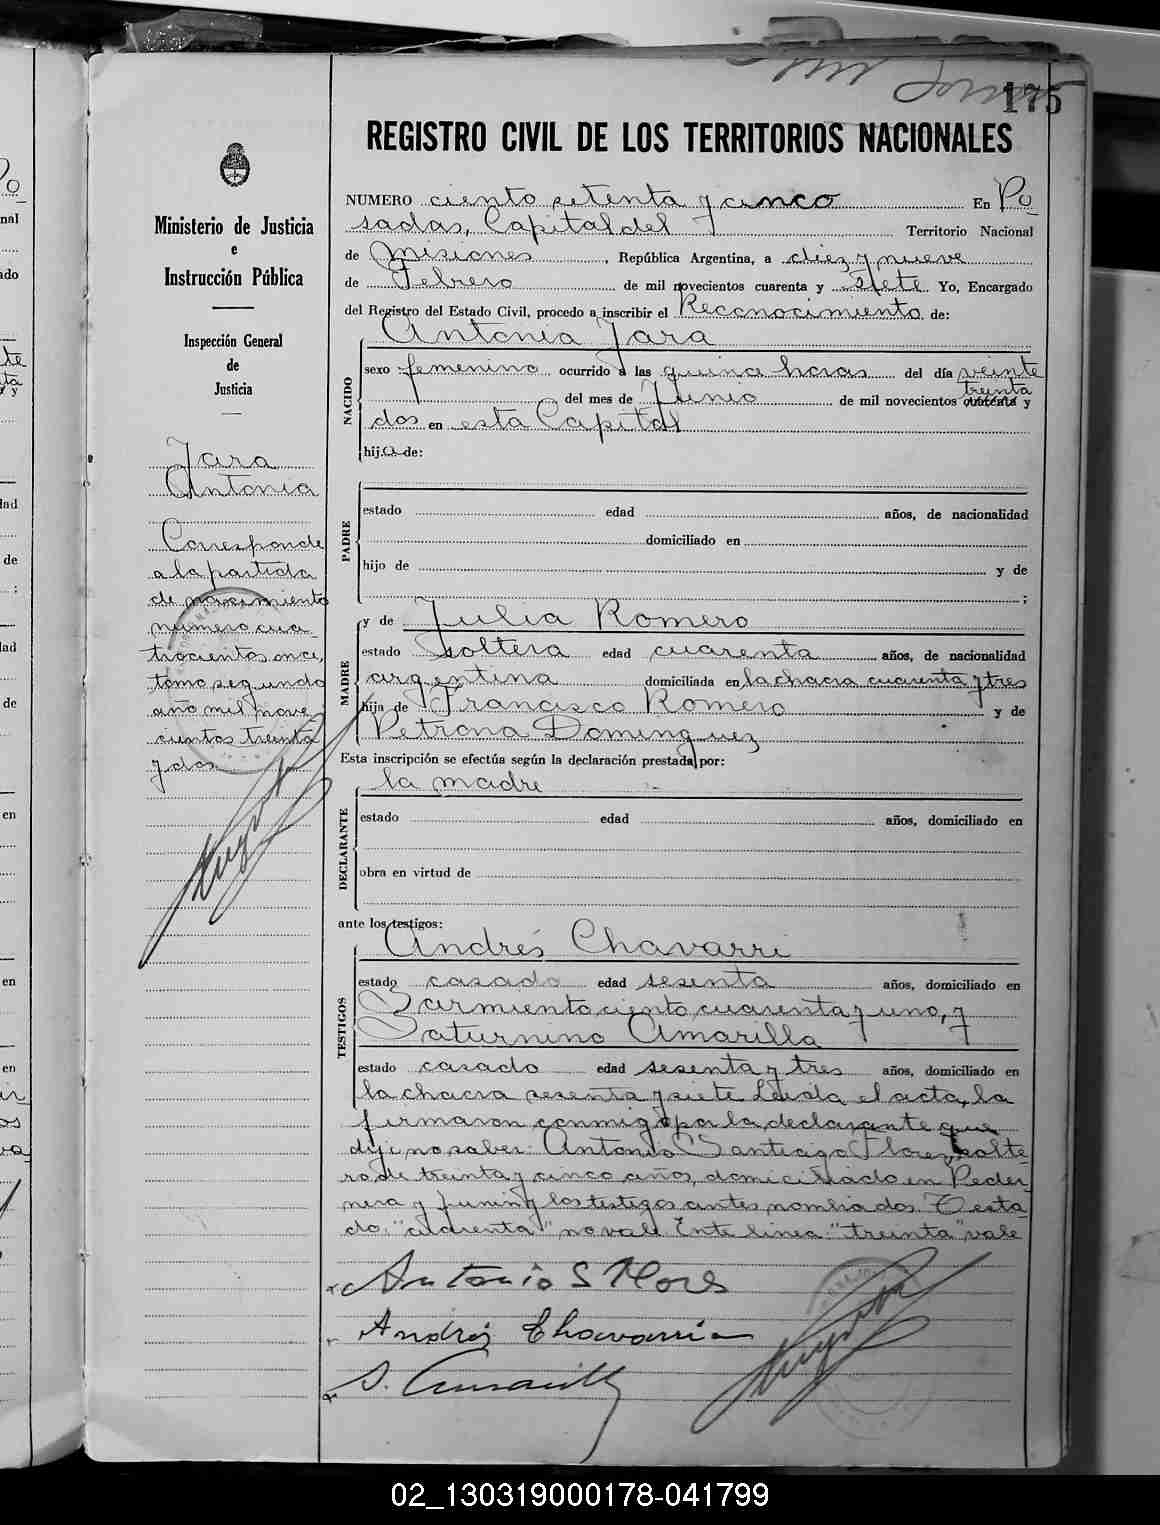 175
REGISTRO CIVIL DE LOS TERRITORIOS NACIONALES
Ministerio de Justicia
e
Instrucción Pública
Inspección General
de
Justicia
Jara
Antonia
Corresponde
a la partida
de nacimiento
número cua-
trocientos once,
tomo segundo
año mil nove
cientos treinta
y dos
NUMERO ciento setenta y cinco En Po
sadas, Capital del Territorio Nacional
de Misiones, República Argentina, a diez y nueve
de Febrero de mil novecientos cuarenta y siete Yo, Encargado
del Registro del Estado Civil, procedo a inscribir el Reconocimiento de:
Antonia Jara
NACIDO
sexo femenino ocurrido a las horas del día veinte
treinta
del mes de Junio de mil novecientos cuarenta y
dos en esta Capital
hija de:
PADRE
estado edad años, de nacionalidad
domiciliado en
hijo de y de
;
MADRE
y de Julia Romero
estado soltera edad cuarenta años, de nacionalidad
argentina domiciliada en la chacra cuarenta y tres
hija de Francisco Romero y de
Petrona Dominguez
Esta inscripción se efectúa según la declaración prestada por:
la madre
DECLARANTE
estado edad años, domiciliado en
obra en virtud de
ante los testigos:
TESTIGOS
Andrés Chavarri
estado casado edad sesenta años, domiciliado en
Sarmiento ciento cuarenta y uno, y
Saturnino Amarilla
estado casado edad sesenta y tres años, domiciliado en
la chacra sesenta y siete Leída el acta, la
firmaron conmigo por la declarante que
dijo no saber: Antonio Santiago Flores, solte-
ro de treinta y cinco años, domiciliado en Peder-
nera y Junin y los testigos antes nombrados. Testa-
do: "cuarenta" no vale. Ente linea: "treinta" vale
Antonio S Flores
Andrés Chavarria
S. Amarilla
02_130319000178-041799